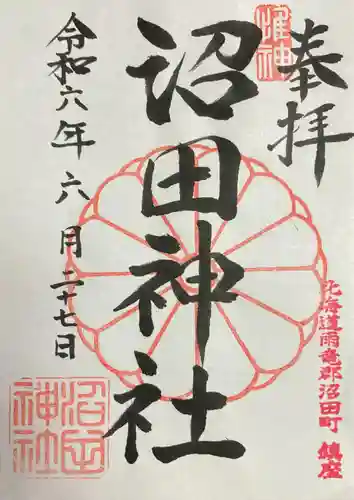 奉拝
惟神
沼田神社
令和六年六月二十七日
北海道雨竜郡沼田町 鎮座
沼田神社